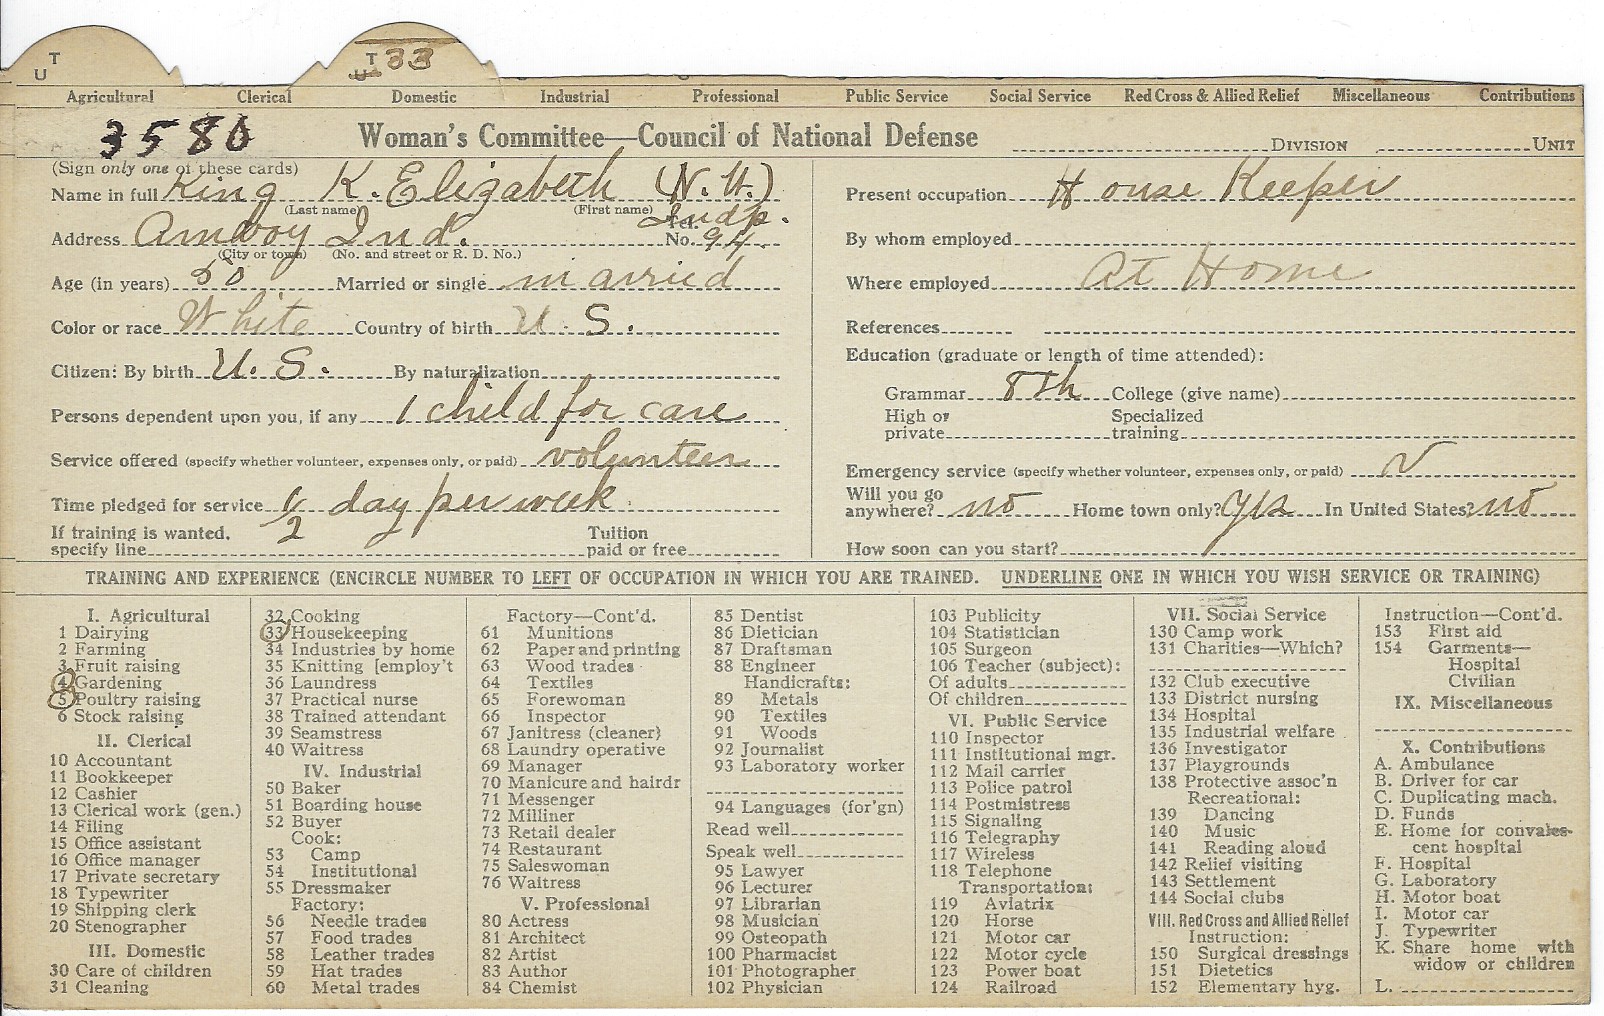 T
U
T 33
U
Agricultural Clerical Domestic Industrial Professional Public Service Social Service Red Cross & Allied Relief Miscellaneous Contributions
3580 Woman's Committee—Council of National Defense DIVISION UNIT
(Sign only one of these cards)
Name in full King K. Elizabeth
(Last name) (First name)
Tel. Indp.
Address Amboy Ind. No. 94.
(City or town) (No. and street or R. D. No.)
Age (in years) 50 Married or single married
Color or race White Country of birth U. S.
Citizen: By birth U. S. By naturalization
Persons dependent upon you, if any 1 child for care
Service offered (specify whether volunteer, expenses only, or paid) volunteer
Time pledged for service 1/2 day per week
If training is wanted, Tuition
specify line paid or free
Present occupation House Keeper
By whom employed
Where employed At Home
References
Education (graduate or length of time attended):
Grammar 8th College (give name)
High or Specialized
private training
Emergency service (specify whether volunteer, expenses only, or paid) v
Will you go
anywhere? no Home town only? Yes In United States? no
How soon can you start?
TRAINING AND EXPERIENCE (ENCIRCLE NUMBER TO LEFT OF OCCUPATION IN WHICH YOU ARE TRAINED. UNDERLINE ONE IN WHICH YOU WISH SERVICE OR TRAINING)
I. Agricultural
1 Dairying
2 Farming
3 Fruit raising
4 Gardening
5 Poultry raising
6 Stock raising
II. Clerical
10 Accountant
11 Bookkeeper
12 Cashier
13 Clerical work (gen.)
14 Filing
15 Office assistant
16 Office manager
17 Private secretary
18 Typewriter
19 Shipping clerk
20 Stenographer
III. Domestic
30 Care of children
31 Cleaning
32 Cooking
33 Housekeeping
34 Industries by home
35 Knitting [employ't
36 Laundress
37 Practical nurse
38 Trained attendant
39 Seamstress
40 Waitress
IV. Industrial
50 Baker
51 Boarding house
52 Buyer
Cook:
53 Camp
54 Institutional
55 Dressmaker
Factory:
56 Needle trades
57 Food trades
58 Leather trades
59 Hat trades
60 Metal trades
Factory—Cont'd.
61 Munitions
62 Paper and printing
63 Wood trades
64 Textiles
65 Forewoman
66 Inspector
67 Janitress (cleaner)
68 Laundry operative
69 Manager
70 Manicure and hairdr
71 Messenger
72 Milliner
73 Retail dealer
74 Restaurant
75 Saleswoman
76 Waitress
V. Professional
80 Actress
81 Architect
82 Artist
83 Author
84 Chemist
85 Dentist
86 Dietician
87 Draftsman
88 Engineer
Handicrafts:
89 Metals
90 Textiles
91 Woods
92 Journalist
93 Laboratory worker
94 Languages (for'gn)
Read well
Speak well
95 Lawyer
96 Lecturer
97 Librarian
98 Musician
99 Osteopath
100 Pharmacist
101 Photographer
102 Physician
103 Publicity
104 Statistician
105 Surgeon
106 Teacher (subject):
Of adults
Of children
VI. Public Service
110 Inspector
111 Institutional mgr.
112 Mail carrier
113 Police patrol
114 Postmistress
115 Signaling
116 Telegraphy
117 Wireless
118 Telephone
Transportation:
119 Aviatrix
120 Horse
121 Motor car
122 Motor cycle
123 Power boat
124 Railroad
VII. Social Service
130 Camp work
131 Charities—Which?
132 Club executive
133 District nursing
134 Hospital
135 Industrial welfare
136 Investigator
137 Playgrounds
138 Protective assoc'n
Recreational:
139 Dancing
140 Music
141 Reading aloud
142 Relief visiting
143 Settlement
144 Social clubs
VIII. Red Cross and Allied Relief
Instruction:
150 Surgical dressings
151 Dietetics
152 Elementary hyg.
Instruction—Cont'd.
153 First aid
154 Garments—
Hospital
Civilian
IX. Miscellaneous
X. Contributions
A. Ambulance
B. Driver for car
C. Duplicating mach.
D. Funds
E. Home for convales-
cent hospital
F. Hospital
G. Laboratory
H. Motor boat
I. Motor car
J. Typewriter
K. Share home with
widow or children
L.